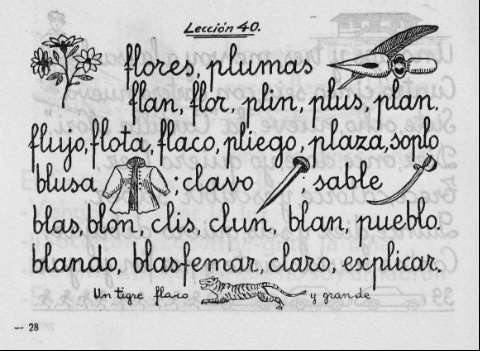 Lección 40.
flores, plumas
flan, flor, plin, plus, plan.
flujo, flota, flaco, pliego, plaza, soplo
blusa ; clavo ; sable
blas, blon, clis, clun, blan, pueblo.
blando, blasfemar, claro, explicar.
Un tigre flaco y grande
— 28